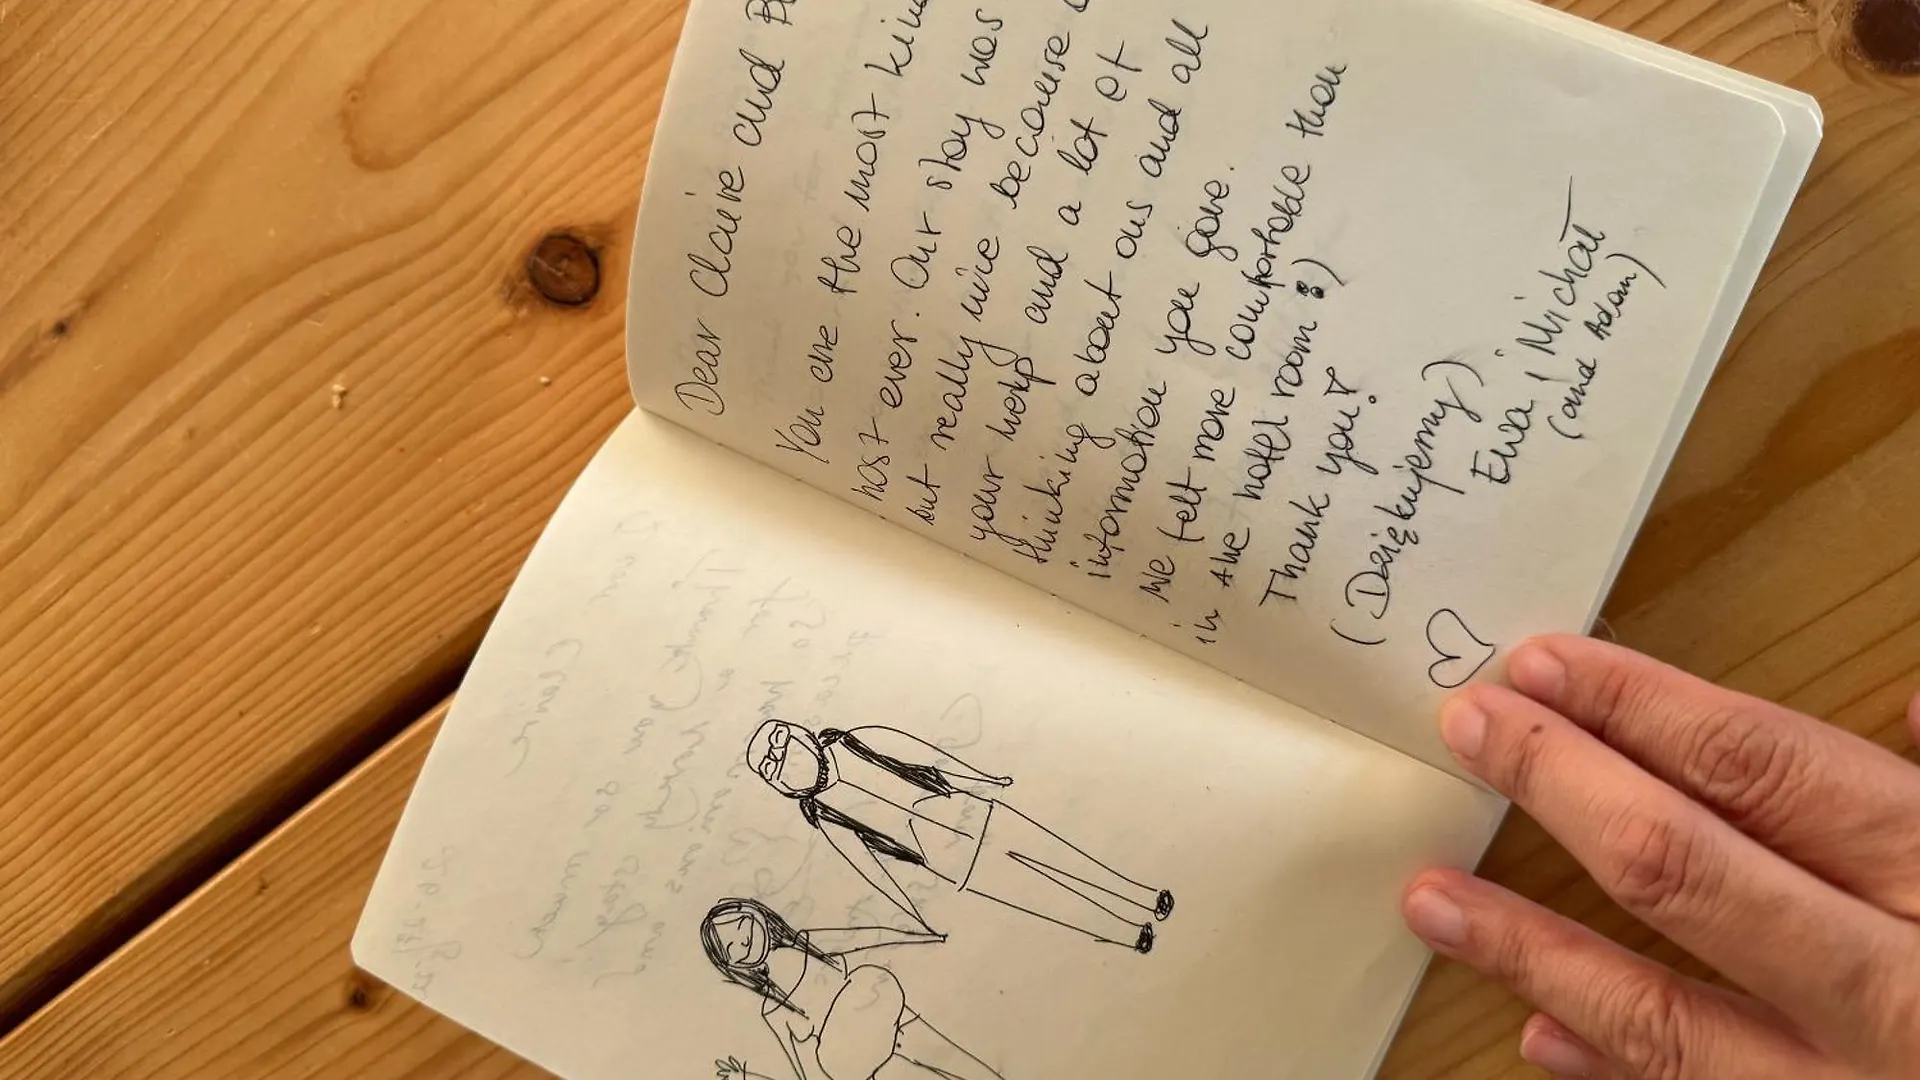 Dear Claire and
You are the most kind
host ever. Our stay was
but really nice because
your help and a lot of
thinking about ous and all
information you gave.
We felt more comfortable than
in the hotel room :)
Thank you!
(Dziękujemy)
Ewa i Michał
(and Adam)